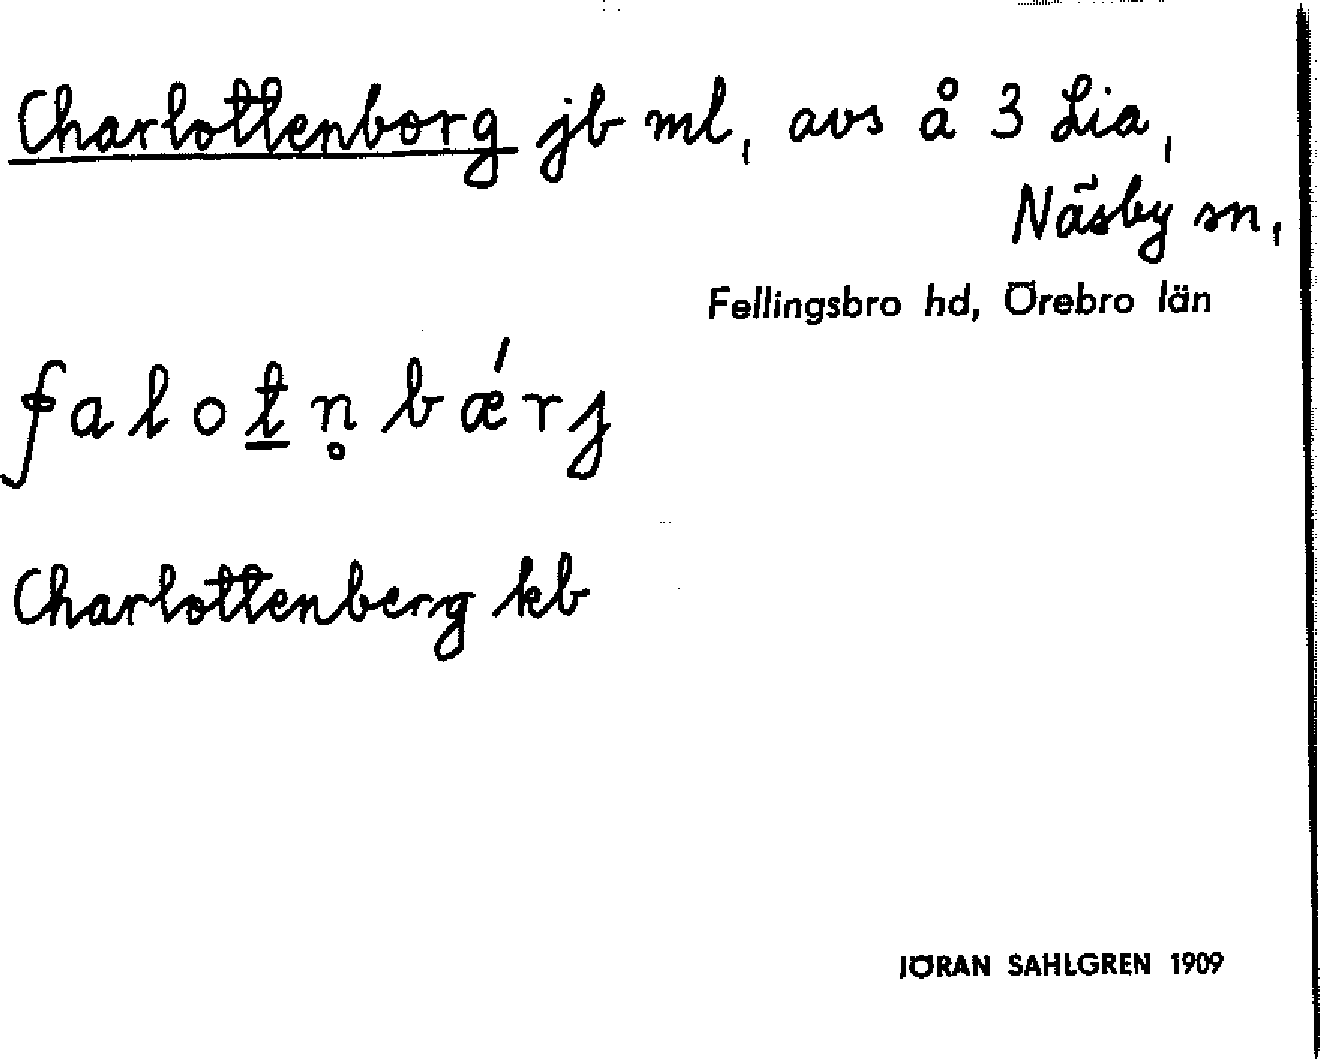 Charlottenborg jb ml, avs å 3 Lia,
Näsby sn,
Fellingsbro hd, Örebro län
ʃalotn̥bǽrj
Charlottenberg kb
JÖRAN SAHLGREN 1909